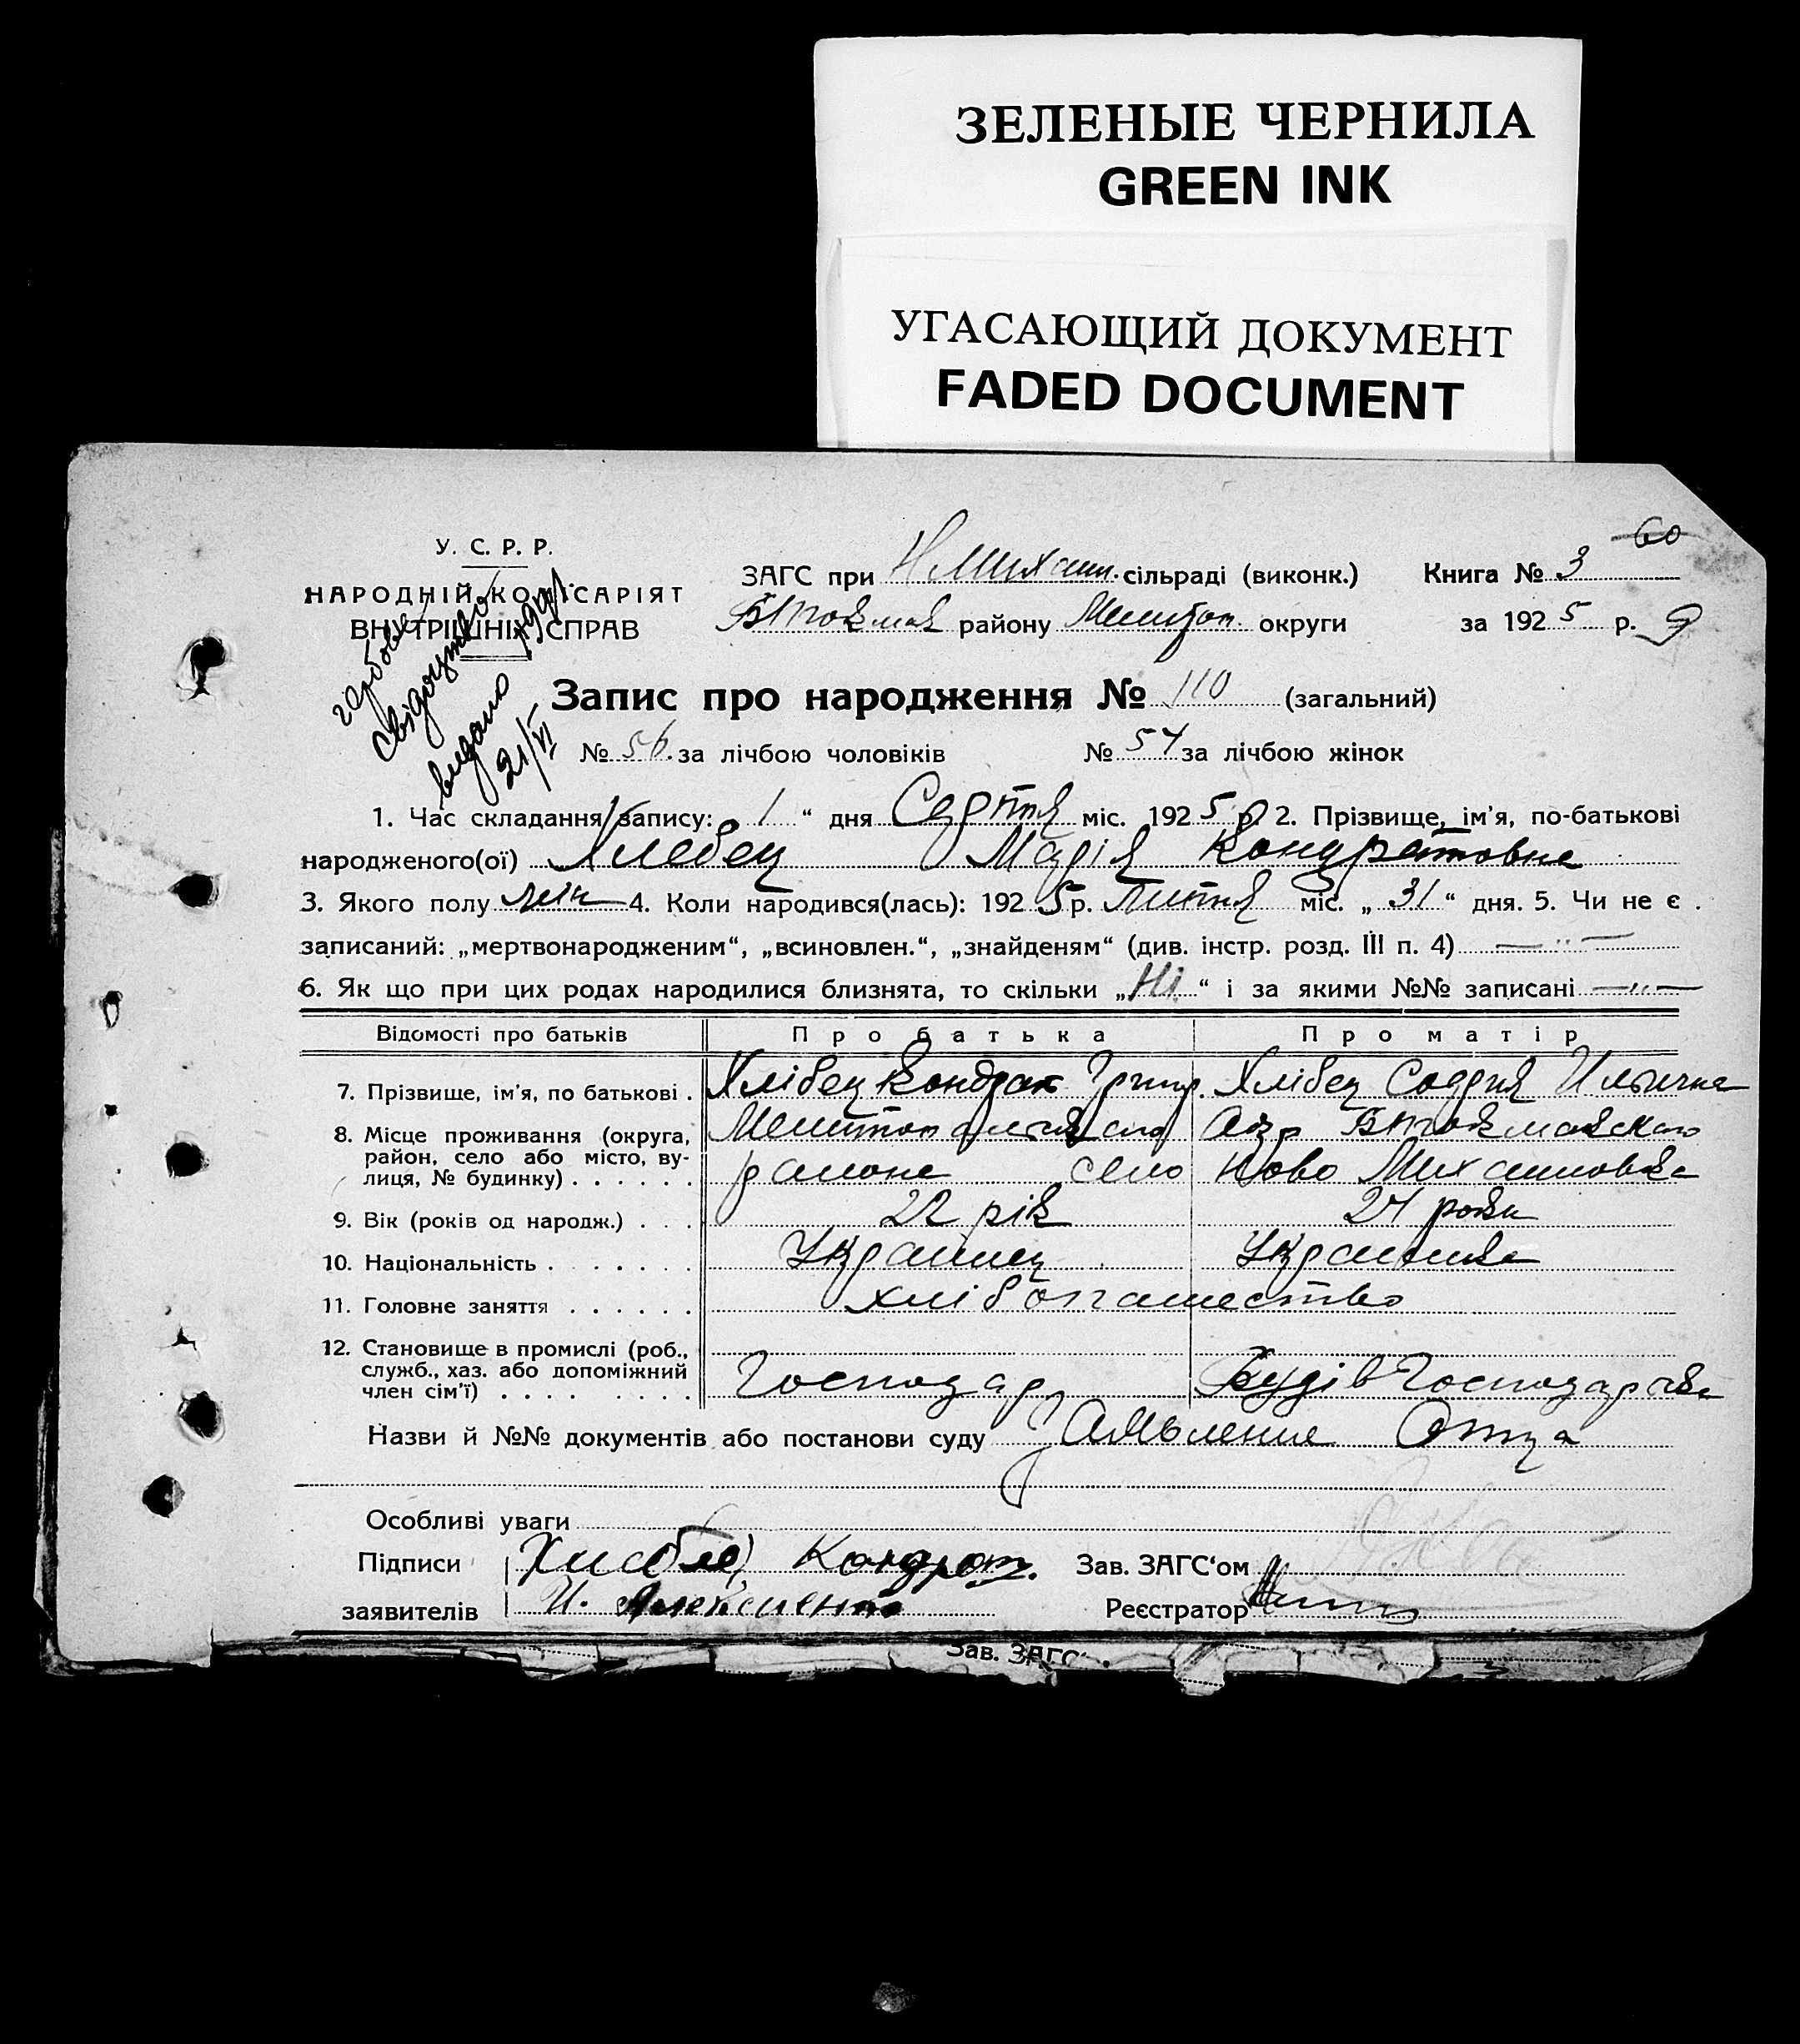 ЗЕЛЕНЫЕ ЧЕРНИЛА
GREEN INK
УГАСАЮЩИЙ ДОКУМЕНТ
FADED DOCUMENT
60
У. С. Р. Р.
НАРОДНІЙ КОМІСАРІЯТ
ВНУТРІШНІХ СПРАВ
ЗАГС при Н Михайл. сільраді (виконк.) Книга № 3
Бтокмак району Мелитоп. округи за 1925 р. 9
свідоцтво
видано
21/VI
Запис про народження № 110 (загальний)
№ 56. за лічбою чоловіків № 54 за лічбою жінок
1. Час складання запису: 1 “ дня Серпня міс. 1925 р 2. Прізвище, ім'я, по-батькові
народженого(ої) Хлебец Марія Кондратовна
3. Якого полу жін 4. Коли народився(лась): 1925 р. Липня міс. „ 31 “ дня. 5. Чи не є
записаний: „мертвонародженим“, „всиновлен.“, „знайденям“ (див. інстр. розд. III п. 4) — „ —
6. Як що при цих родах народилися близнята, то скільки „ Ні “ і за якими №№ записані — „ —
Відомості про батьків Про батька Про матір
7. Прізвище, ім'я, по батькові . Хлібец Кондрат Григор. Хлібец Софія Ильична
8. Місце проживання (округа, район, село або місто, вулиця, № будинку) . . . . . . Бтокмакского
района село Ново Михайловка
9. Вік (років од народж.) . . . 22 рік 24 роки
10. Національність . . . . . . Українец Українка
11. Головне заняття . . . . . . хлібопашество
12. Становище в промислі (роб., служб., хаз. або допоміжний член сім'ї) . . . . . . . . . Господар
Назви й №№ документів або постанови суду Заявление Отца
Особливі уваги
Підписи Хлебец Кондрат. Зав. ЗАГС‘ом
заявителів И. Алексиенко Реєстратор
Зав. ЗАГС